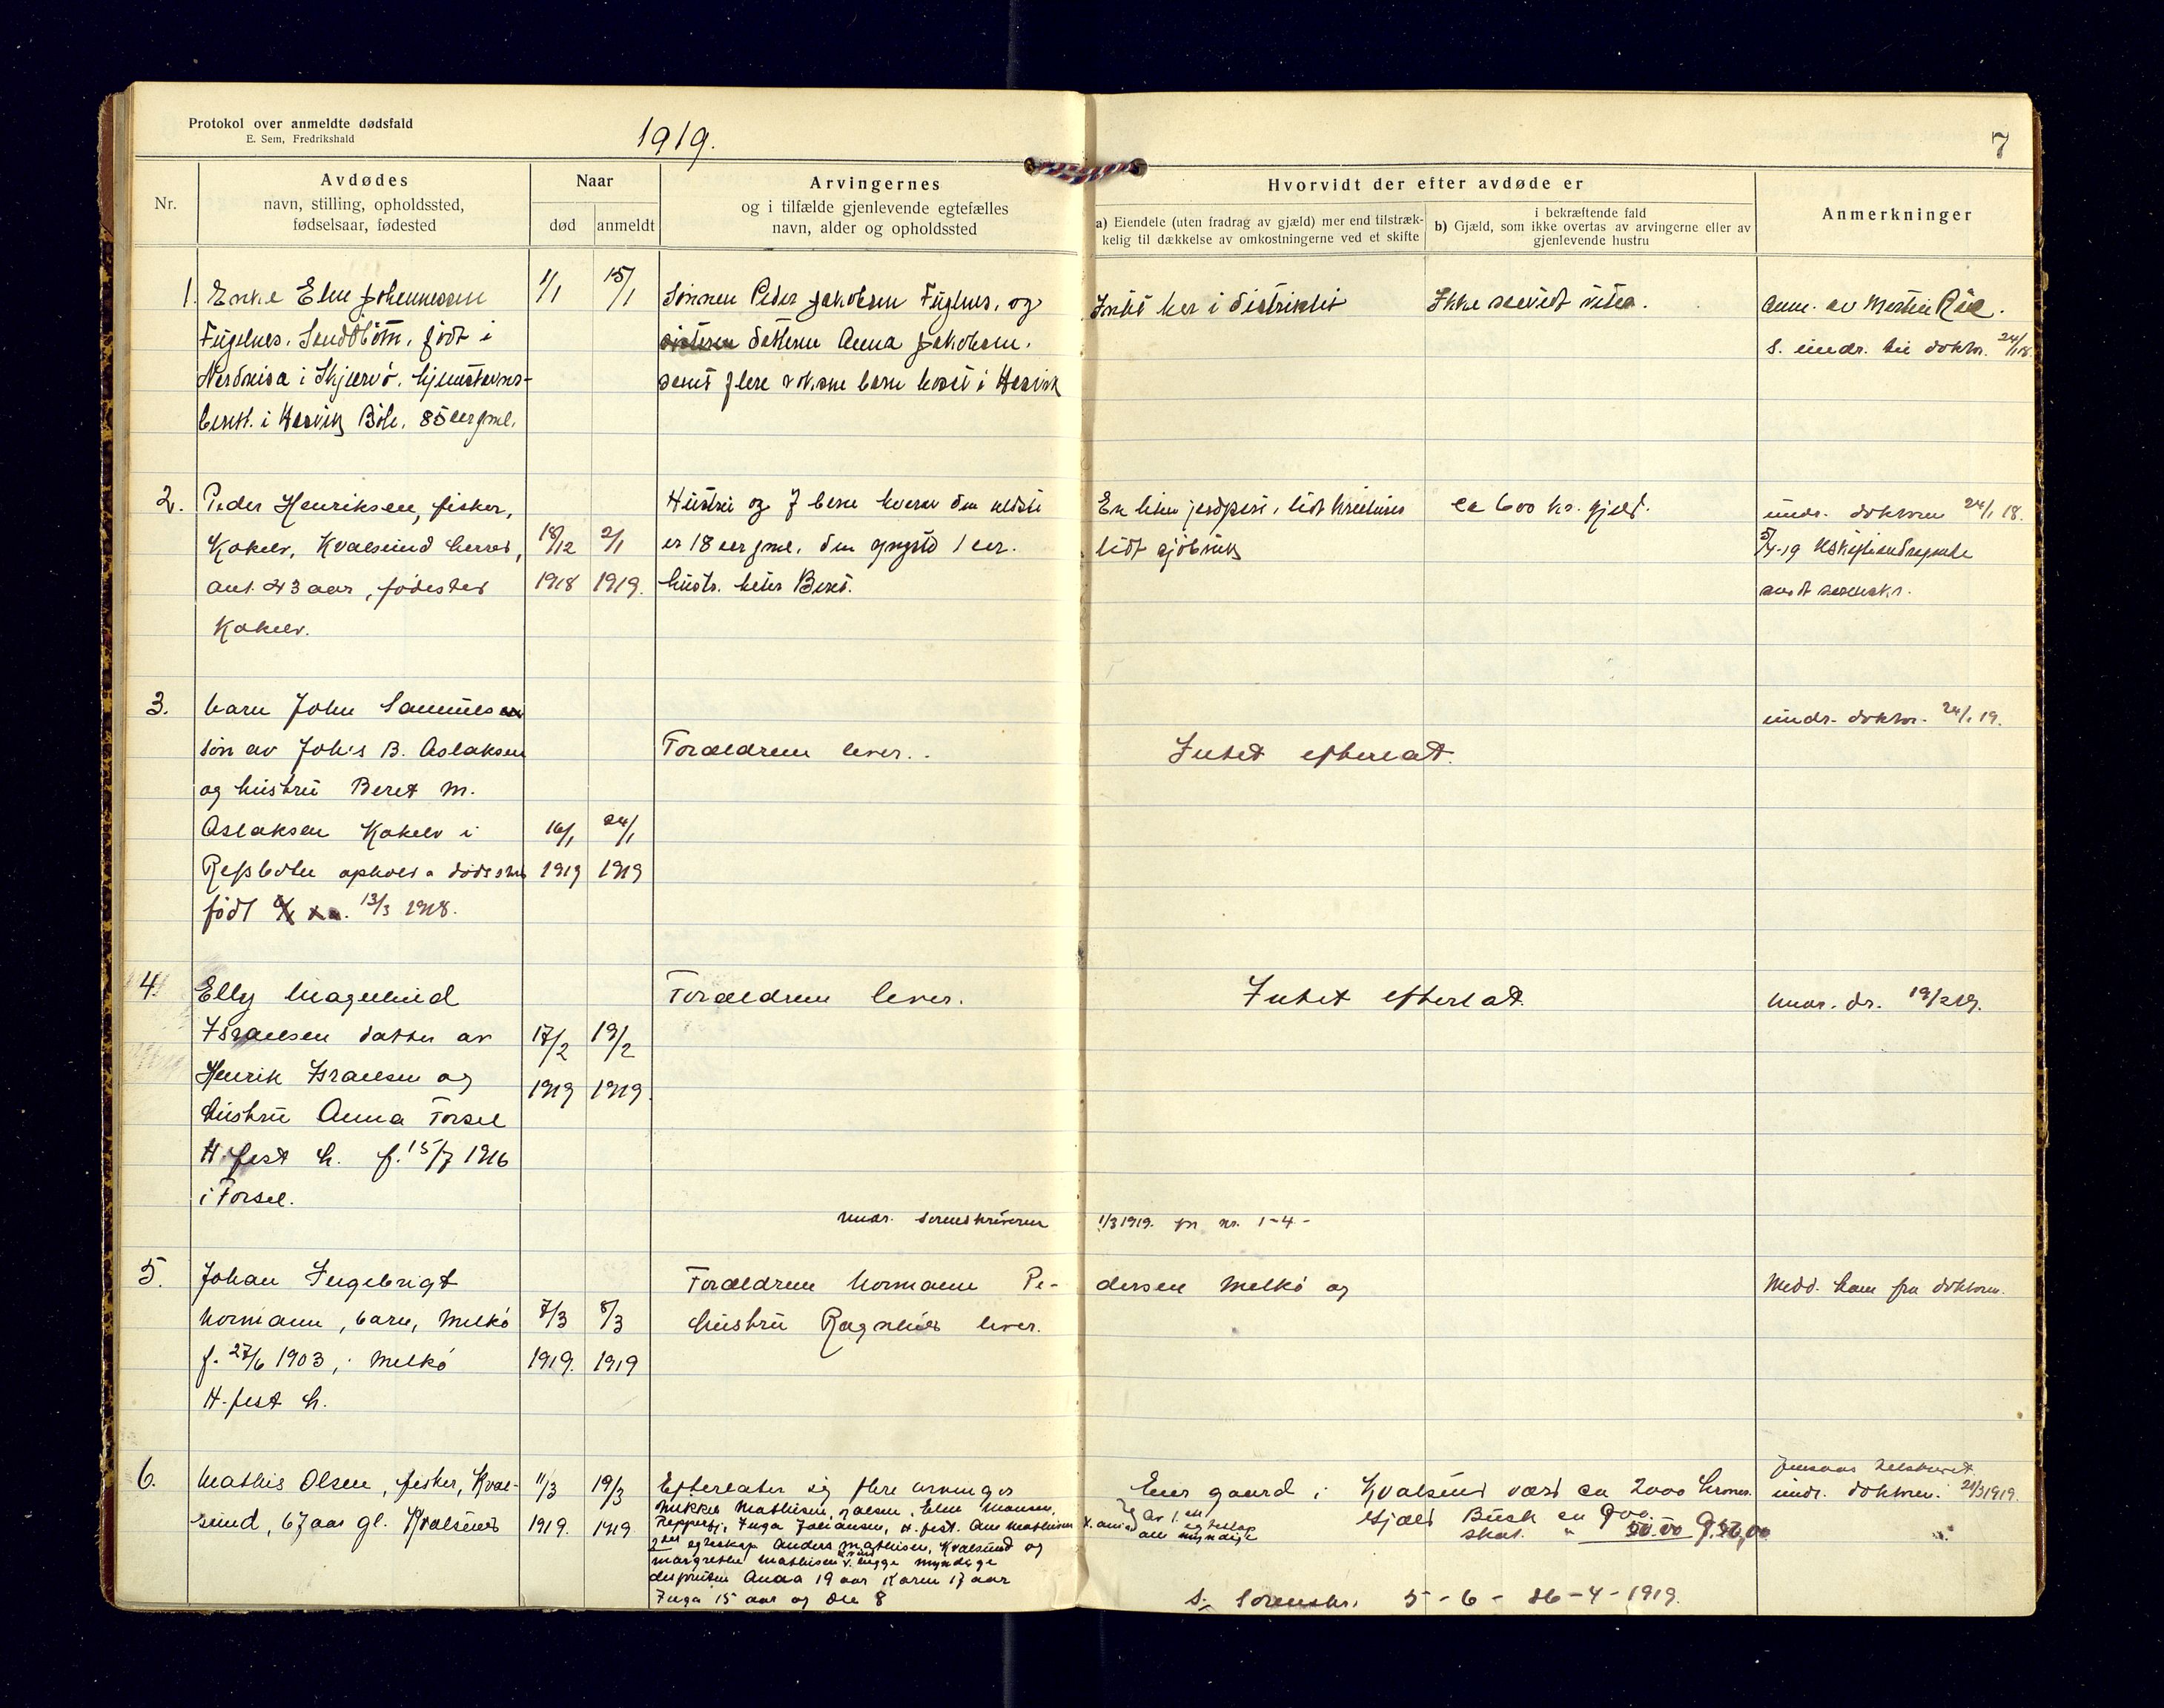 Protokol over anmeldte dødsfald
E. Sem, Fredrikshald
1919.
7
Nr.
Avdødes
navn, stilling, opholdssted,
fødselsaar, fødested
Naar
død
anmeldt
Arvingernes
og i tilfælde gjenlevende egtefælles
navn, alder og opholdssted
Hvorvidt der efter avdøde er
a) Eiendele (uten fradrag av gjæld) mer end tilstræk-
kelig til dækkelse av omkostningerne ved et skifte
i bekræftende fald
b) Gjæld, som ikke overtas av arvingerne eller av
gjenlevende hustru
Anmerkninger
1. Enke Elen Johannesen
Fuglnes, født i
Nordreisa i Skjervø, hjemstavns-
beret. i Hasvik 85 aar gml.
1/1
15/1
Sønnen Peder Jakobsen Fuglnes, og
datteren Anna Jakobsen.
samt flere voksne barn bosat i Hasvik
Intet her i distriktet
Ikke saavidt vites.
Anm. av Martin
24/1 18.
2. Peder Henriksen, fisker,
Kokelv, Kvalsund herred,
ant. 43 aar, fødested
Kokelv.
18/12
1918
2/1
1919.
Hustru og 7 barn hvorav den ældste
er 18 aar gml. den yngste 1 aar.
hustr. heter Beret.
En liten jordpart, lidt kreaturer
lidt sjøbruk
ca 600 kr. gjæld.
undr. doktoren 24/1 18.
sendt sorenskr.
3. barn John Samuelsen
søn av Johs B. Aslaksen
og hustru Beret M.
Aslaksen Kokelv i
Refsbotn ophold
født 13/3 1918.
16/1
1919
24/1
1919
Forældrene lever.
Intet efterlat.
undr. doktor. 24/1 19.
4. Elly Magnhild
Israelsen datter av
Henrik Israelsen og
hustru Anna Forsøl
H.fest h. f. 15/7 1916
i Forsøl.
17/2
1919
19/2
1919.
Forældrene lever.
Intet efterlat.
undr. dr. 19/2 19.
undr. sorenskriveren 1/3 1919. nr. 1-4-
5. Johan Ingebrigt
Normann, barn, Melkø
f. 27/6 1903, i Melkø
H-fest h.
7/3
1919.
8/3
1919
Forældrene Normann Pe-
dersen Melkø og
hustru Ragnhild lever.
Medd. kom fra doktoren.
6. Mathis Olsen, fisker, Kval-
sund, 67 aar gl. Kvalsund
11/3
1919.
19/3
1919
Efterlater sig flere arvinger
Mikkel Mathisen, Elen Monsen,
Repperfj., Inga Johansen, H. fest. Ane Mathisen
egteskap Anders Mathisen, Kvalsund og
Margrethe Mathisen begge myndige
desforuten Anna 19 aar Karen 17 aar
Inga 15 aar og Ole 8
alle myndige
Eier gaard i Kvalsund værd ca 2000 kroner.
Gjæld Busk ca 900.
skat. " 50.00
undr. doktoren. 21/3 1919.
s. Sorenskr. 5-6- 26-4-1919.